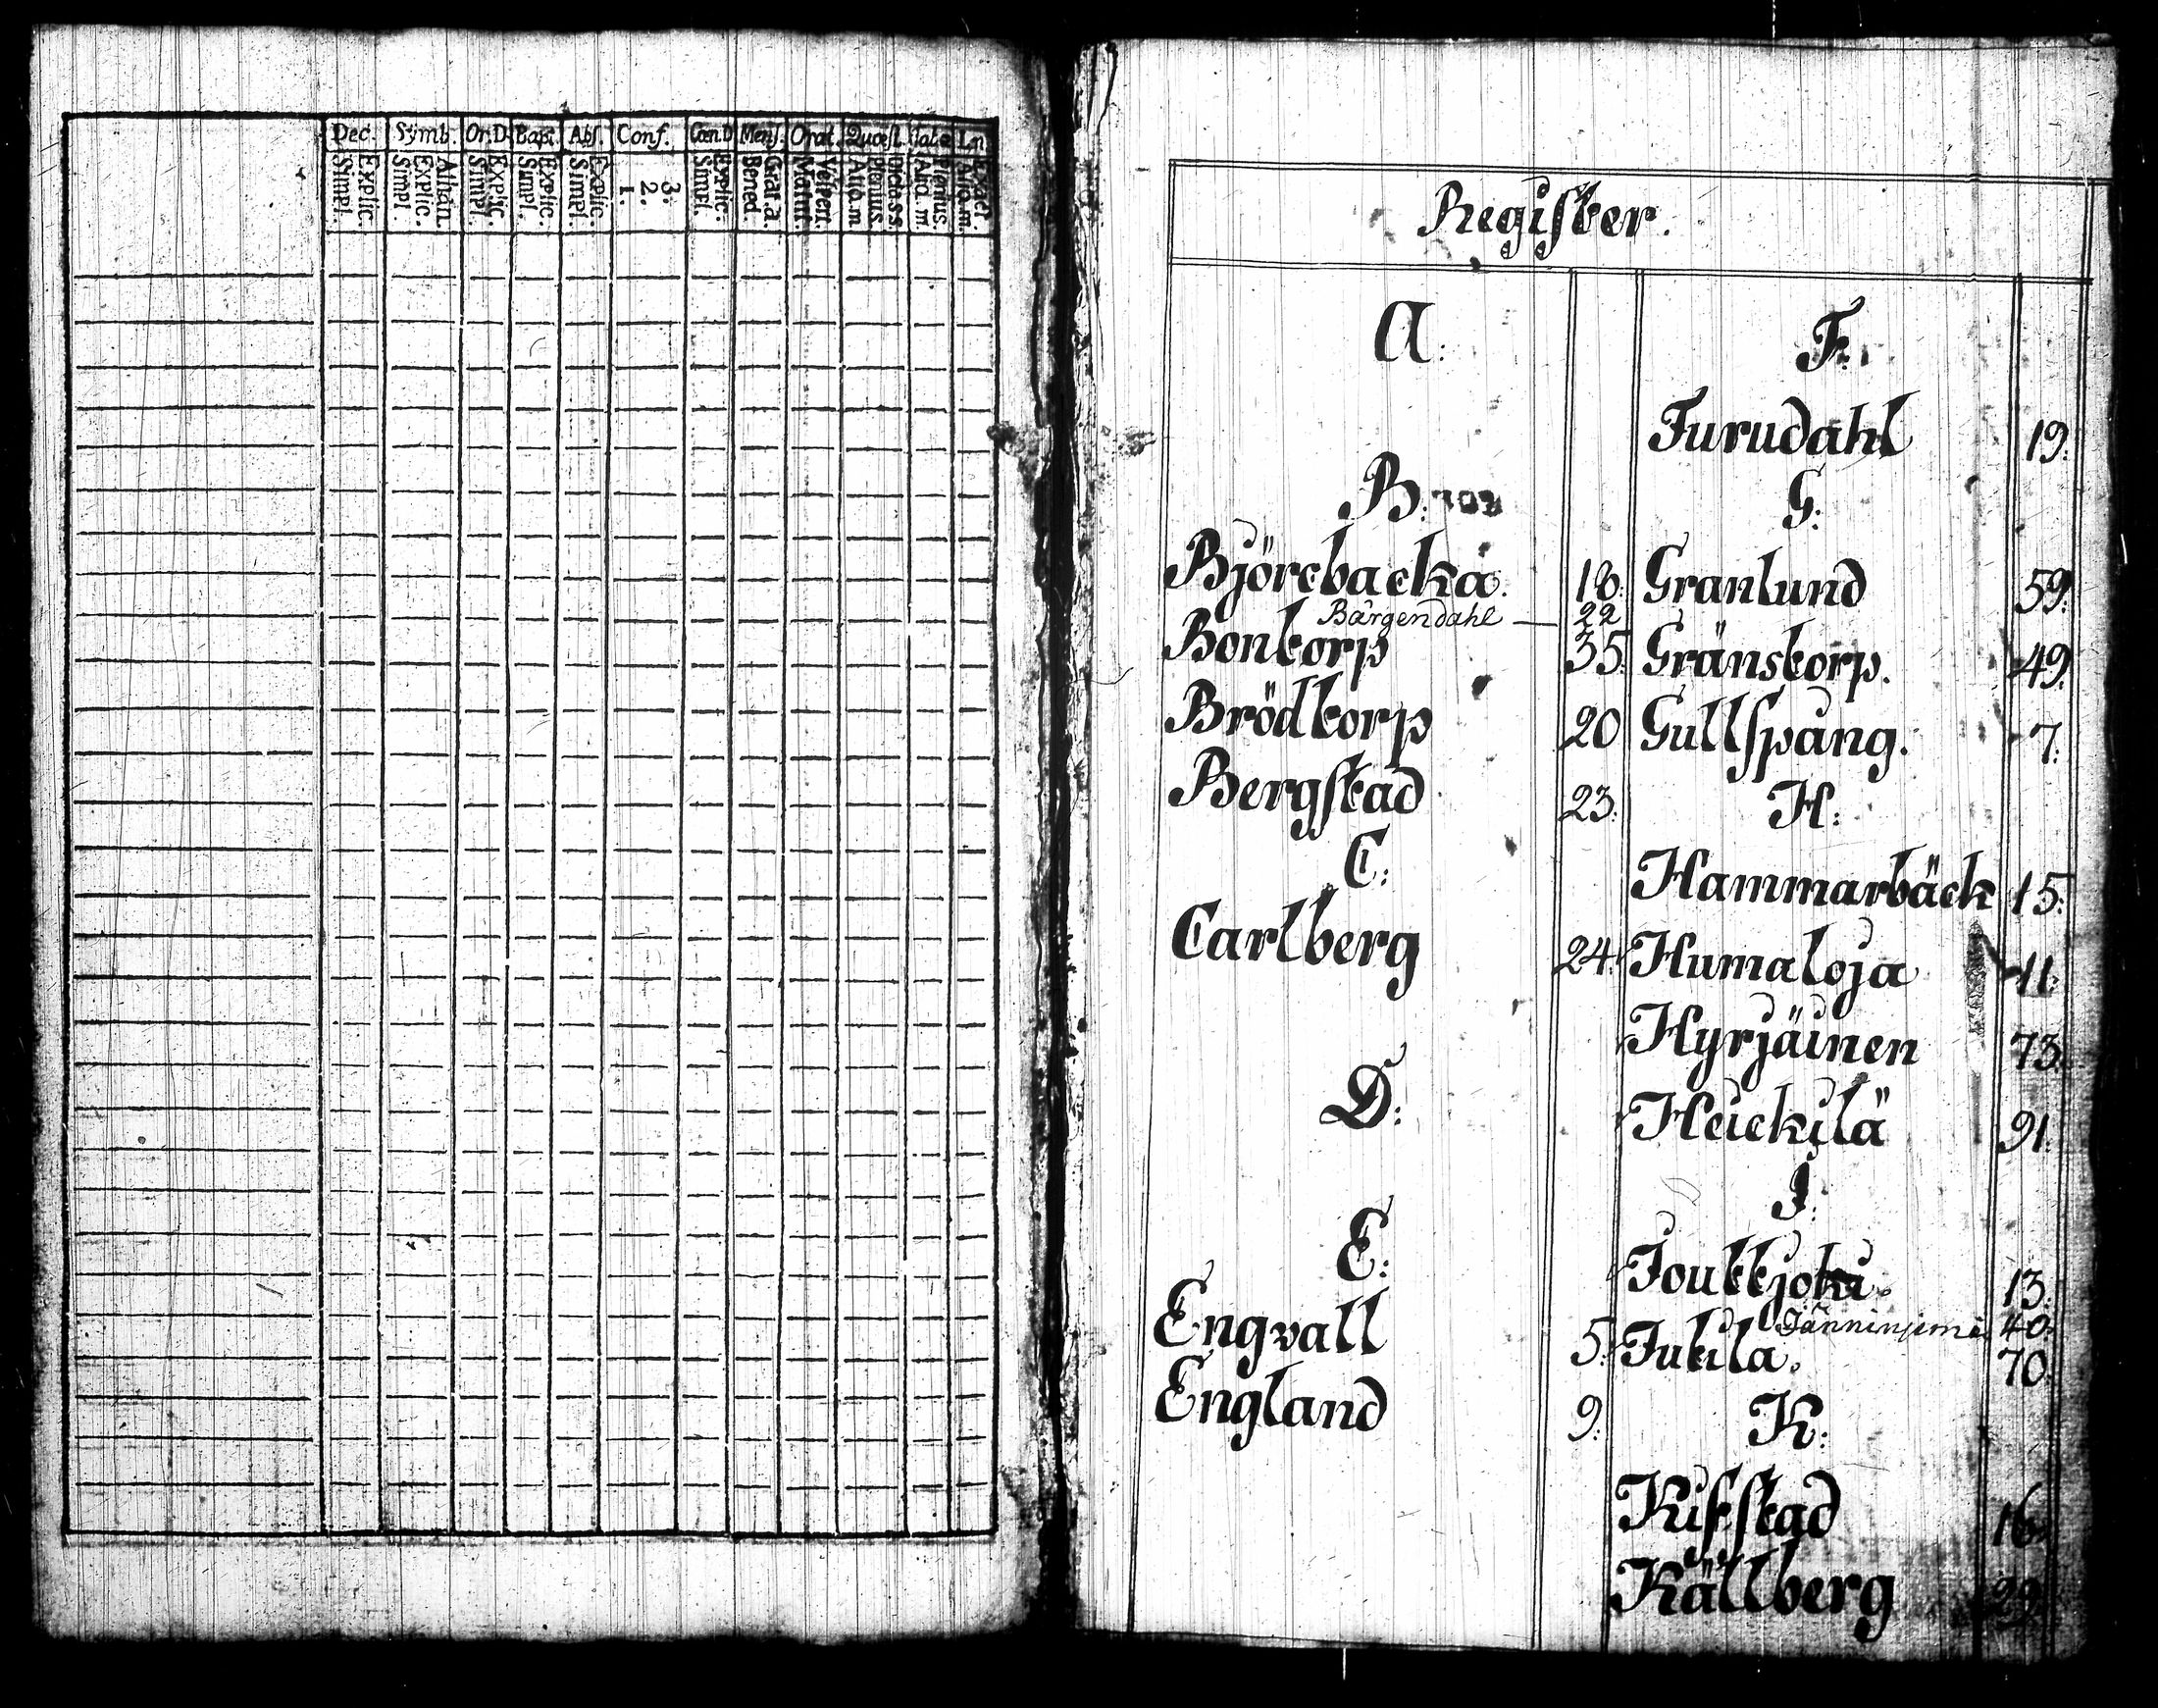 Dec. Symb. Or.D. Bapt. Abs. Conf. Cœn.D Mens. Orat. Quæst.
Simpl. Explic.
Simpl. Explic. Athan
Simpl. Explic.
Simpl. Explic.
Simpl. Explic.
1. 2. 3.
Simpl. Explic.
Bened. Grat.a.
Matut. Vespert.
Aliq.m Plenius. Dicta.s.s.
Aliq.m. Plenius.
Aliq.m.
Register.
A:
B:
Björcbacka. 18:
Bärgendahl — 22
Bontorp 35:
Brödtorp 20
Bergstad 23:
C:
Carlberg 24:
D:
E:
Engvall 5:
England 9:
F:
Furudahl 19:
G:
Granlund 59:
Gränstorp. 49:
Gullspång. 7:
H:
Hammarbäck 15:
Humaloja 11:
Hyrjäinen 73:
Heickilä 91:
J:
Jouttjoki. 13:
Jänninjemi 40:
Jukila. 70:
K:
Kifstad 16:
Källberg 29: